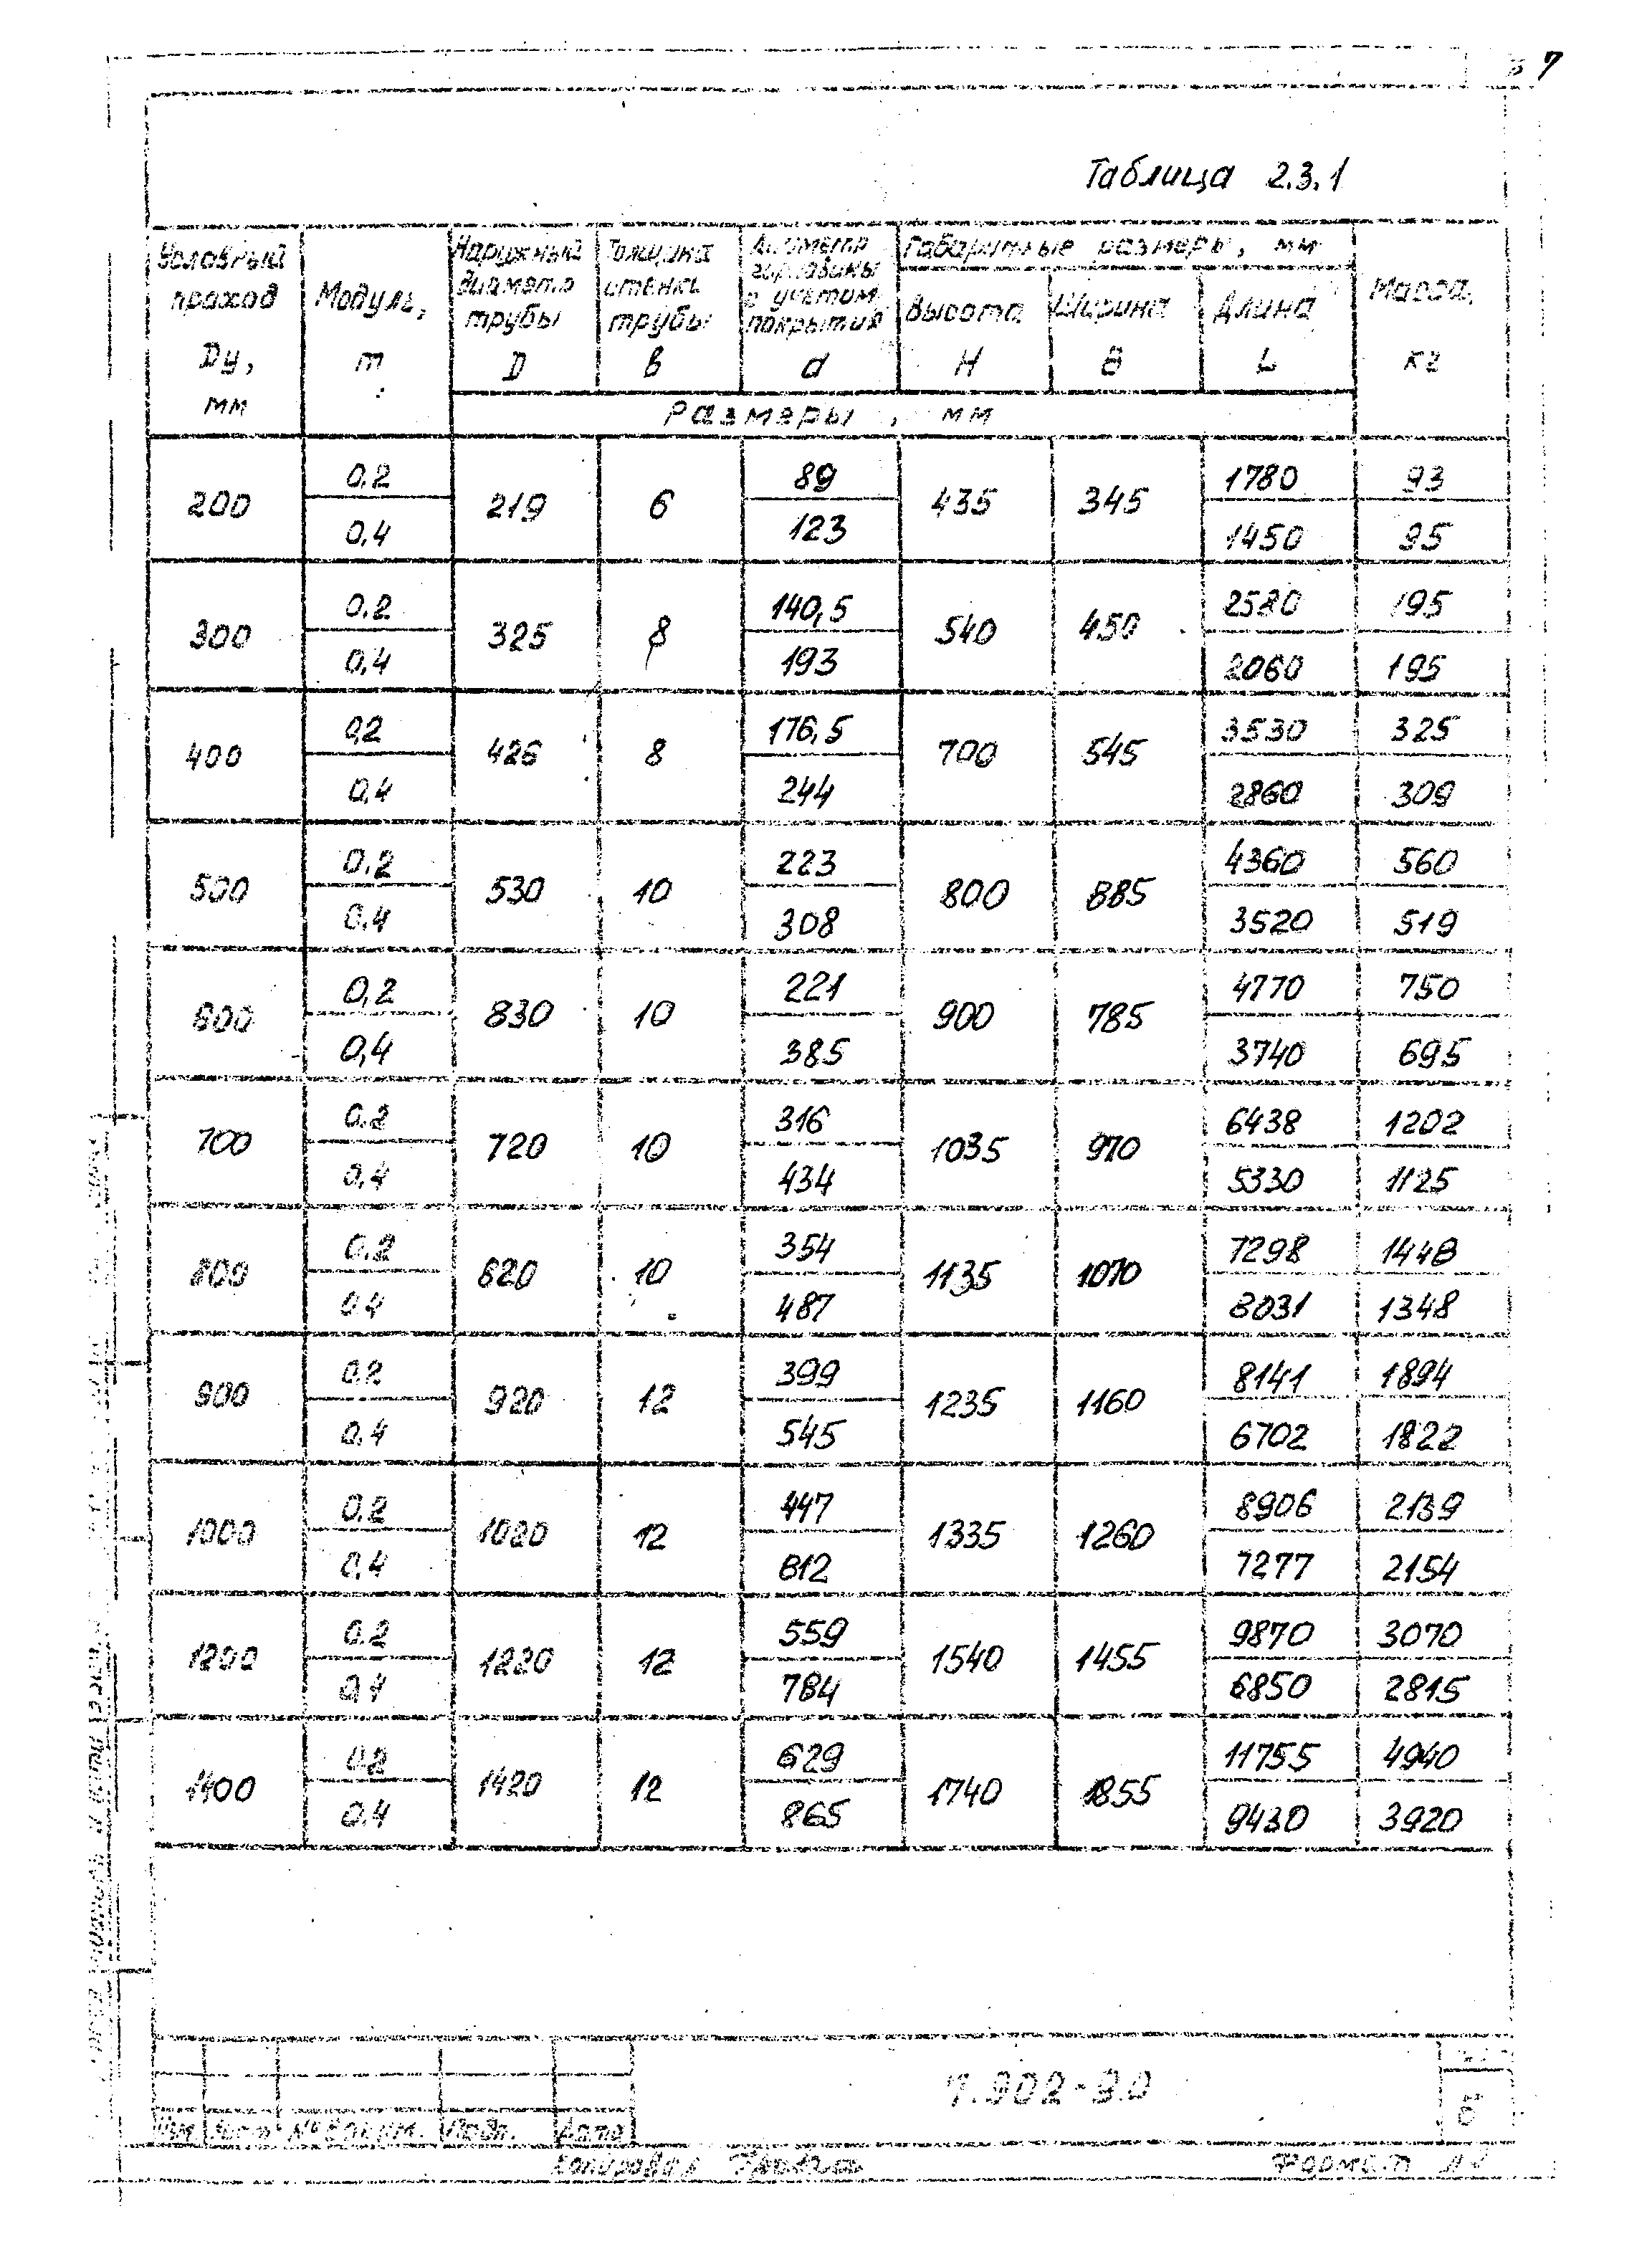 7
Таблица 2.3.1
Условный проход Ду, мм | Модуль, m | Наружный диаметр трубы D | Толщина стенки трубы в | Диаметр горловины с учетом покрытия d | Габаритные размеры, мм | Масса, кг
Высота H | Ширина B | Длина L
Размеры, мм
200 | 0.2 | 219 | 6 | 89 | 435 | 345 | 1780 | 93
0,4 | 123 | 1450 | 95
300 | 0.2 | 325 | 8 | 140,5 | 540 | 450 | 2580 | 195
0,4 | 193 | 2060 | 195
400 | 0,2 | 426 | 8 | 176,5 | 700 | 545 | 3530 | 325
0,4 | 244 | 2860 | 309
500 | 0.2 | 530 | 10 | 223 | 800 | 885 | 4360 | 560
0.4 | 308 | 3520 | 519
600 | 0,2 | 630 | 10 | 221 | 900 | 785 | 4770 | 750
0,4 | 385 | 3740 | 695
700 | 0.2 | 720 | 10 | 316 | 1035 | 970 | 6438 | 1202
0,4 | 434 | 5330 | 1125
800 | 0.2 | 820 | 10 | 354 | 1135 | 1070 | 7298 | 1448
0.4 | 487 | 6031 | 1348
900 | 0.2 | 920 | 12 | 399 | 1235 | 1160 | 8141 | 1894
0.4 | 545 | 6702 | 1822
1000 | 0.2 | 1020 | 12 | 447 | 1335 | 1260 | 8906 | 2139
0,4 | 612 | 7277 | 2154
1200 | 0.2 | 1220 | 12 | 559 | 1540 | 1455 | 9870 | 3070
0,4 | 784 | 6850 | 2815
1400 | 0.2 | 1420 | 12 | 629 | 1740 | 1855 | 11755 | 4940
0.4 | 865 | 9430 | 3920
7.902-9.0
Изм. Лист № докум. Подп. Дата
Копировал
Формат